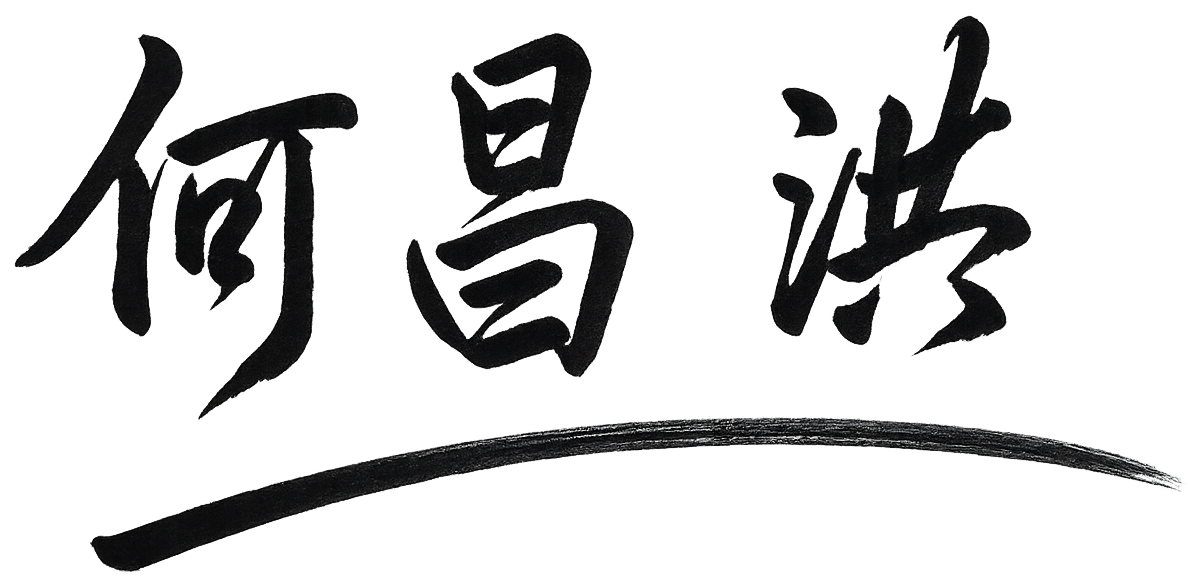 何昌洪